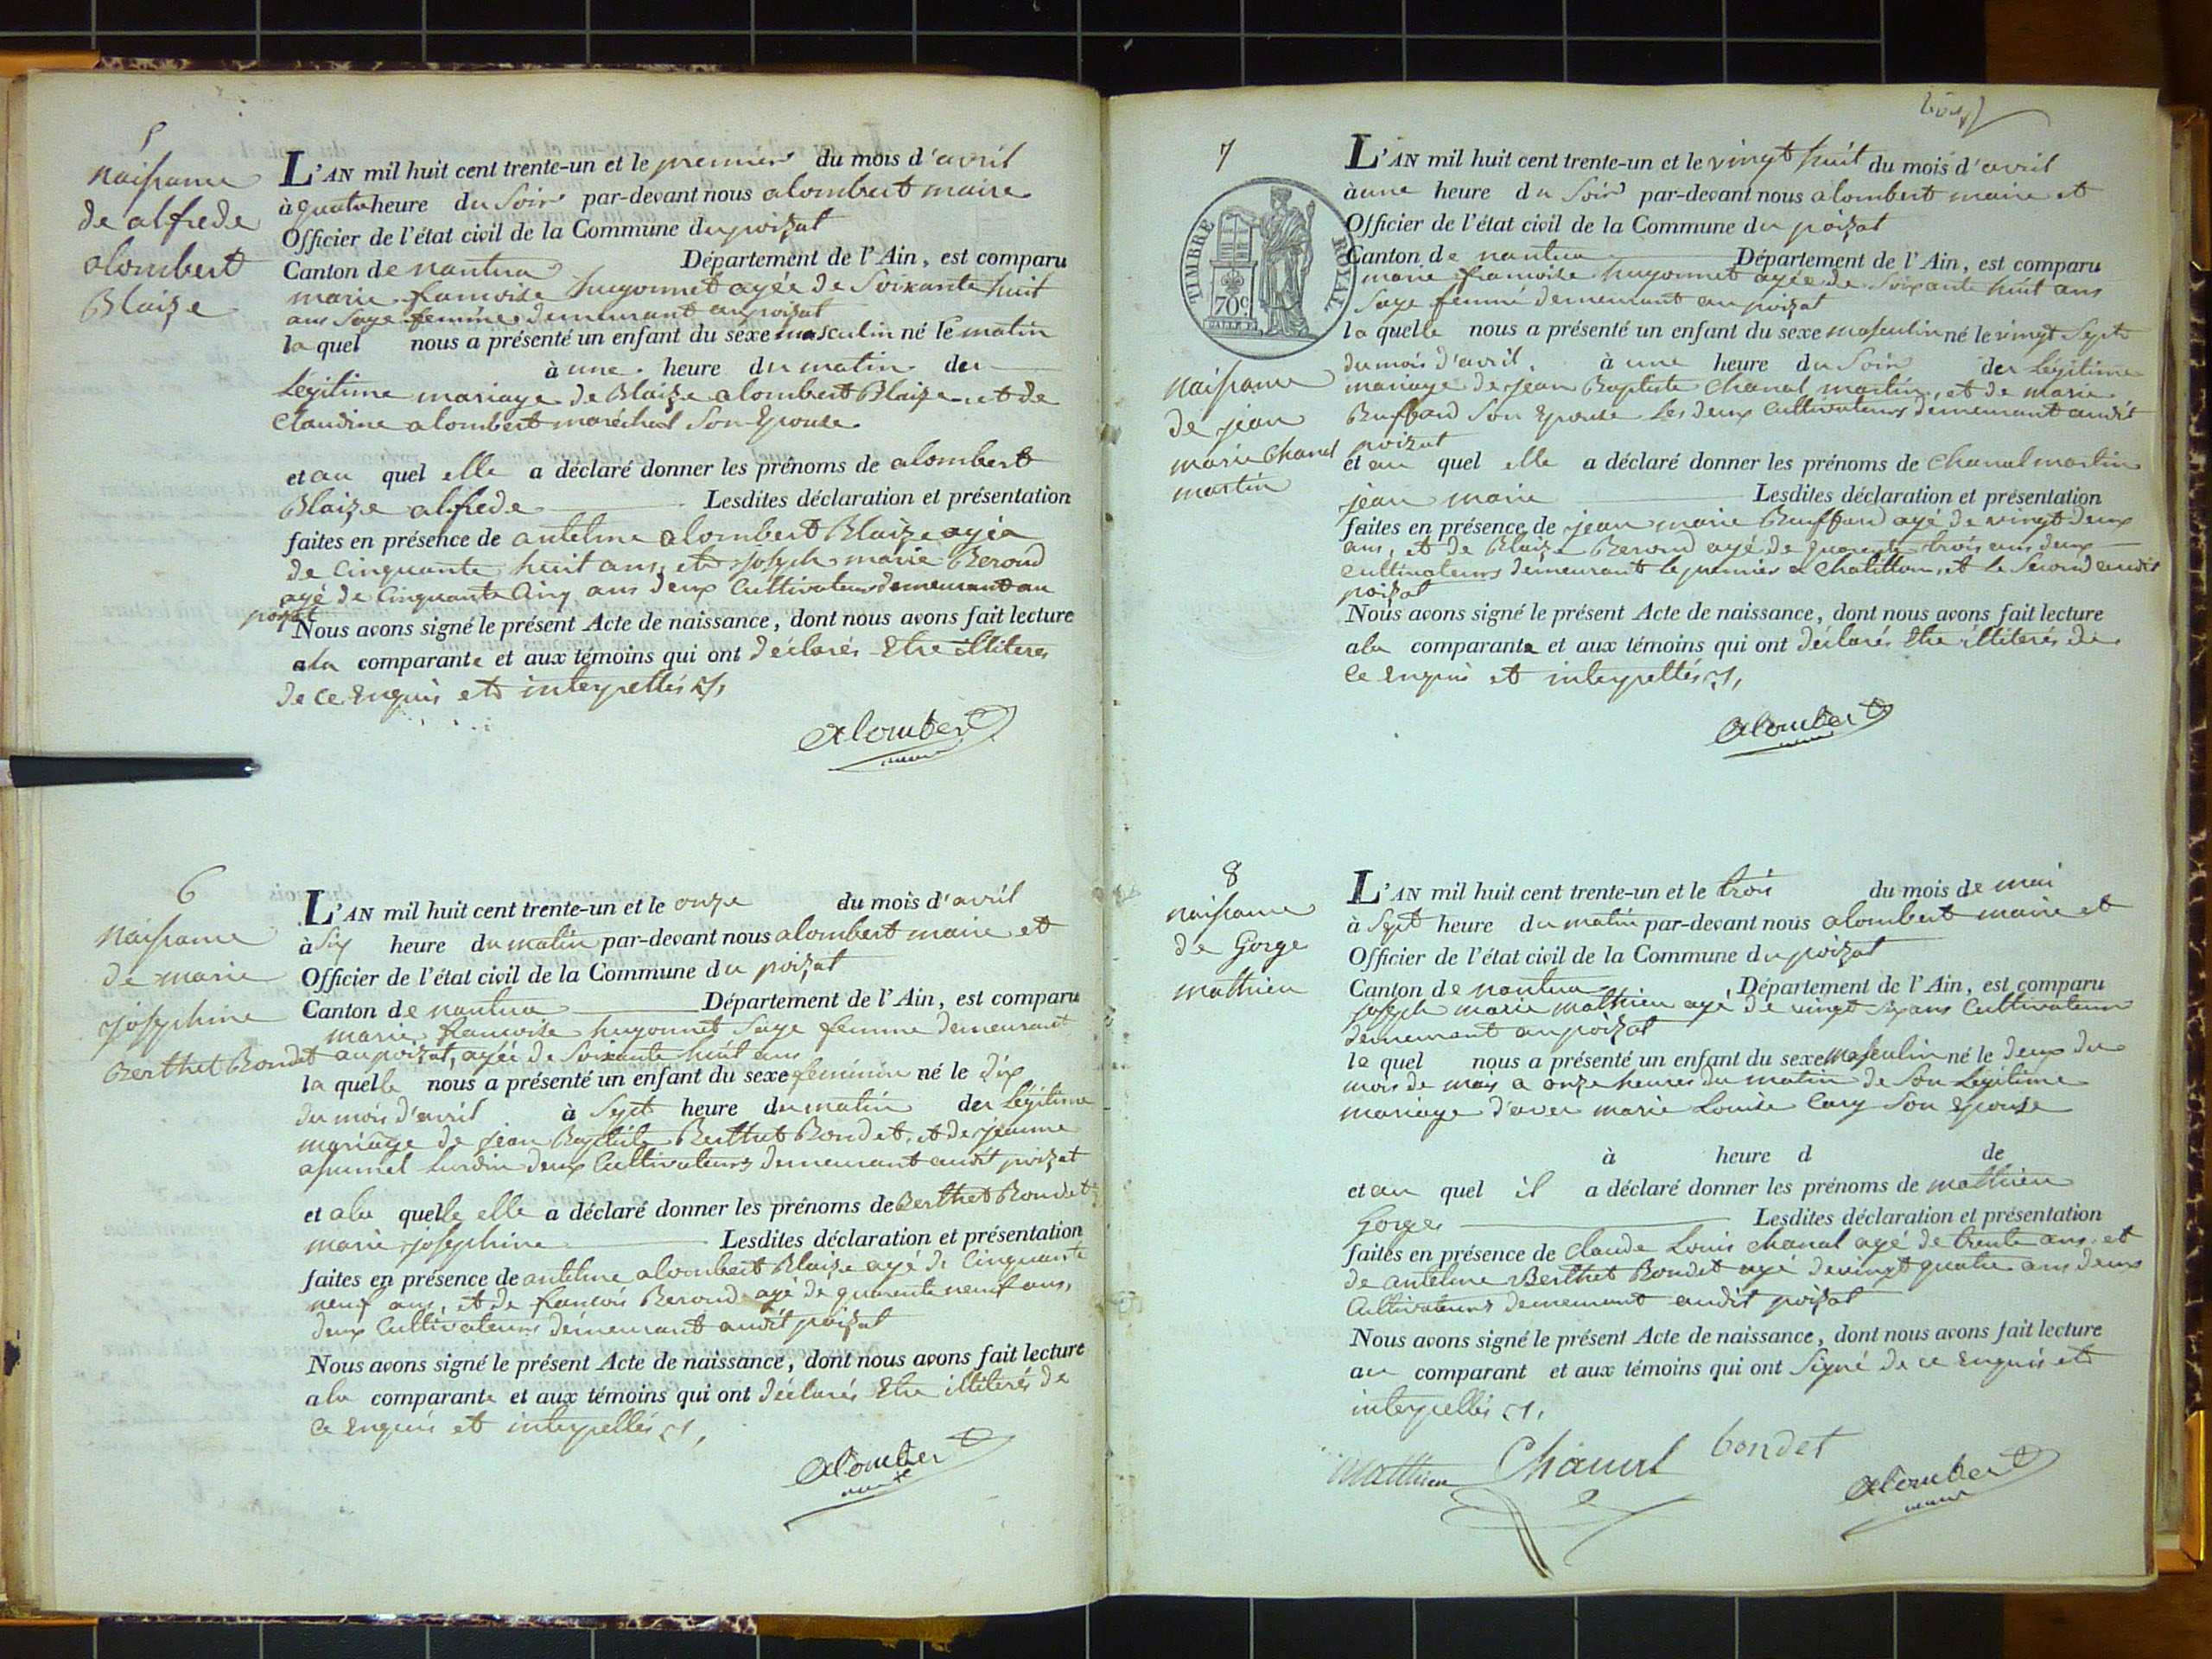 5
naissance
de alfrede
alombert
Blaize
L'AN mil huit cent trente-un et le premier du mois d'avril
à quatre heure du Soir par-devant nous alombert maire
Officier de l'état civil de la Commune du poizat
Canton de nantua Département de l'Ain, est comparu
marie francoise huyonnet agée de Soixante huit
ans Sage femme demeurant au poizat
la quel nous a présenté un enfant du sexe masculin né le matin
à une heure du matin du
Légitime mariage de Blaize alombert Blaize et de
Claudine alombert maréchal Son Epouse
et au quel elle a déclaré donner les prénoms de alombert
Blaize alfrede Lesdites déclaration et présentation
faites en présence de antelme alombert Blaize agé
de Cinquante huit ans, et Joseph marie Beroud
agé de Cinquante Cinq ans deux Cultivateurs demeurant au
poizat
Nous avons signé le présent Acte de naissance, dont nous avons fait lecture
a la comparante et aux témoins qui ont déclarés Etre illiteres
de ce Enquis et interpellés
alombert
6
naissance
de marie
josephine
Berthet Bondet
L'AN mil huit cent trente-un et le onze du mois d'avril
à Six heure du matin par-devant nous alombert maire et
Officier de l'état civil de la Commune du poizat
Canton de nantua Département de l'Ain, est comparu
marie francoise huyonnet Sage femme demeurant
au poizat, agée de Soixante huit ans
la quelle nous a présenté un enfant du sexe feminin né le dix
du mois d'avril à Sept heure du matin du Légitime
mariage de jean Baptiste Berthet Bondet, et de jeanne
deux Cultivateurs demeurant audit poizat
et a la quelle elle a déclaré donner les prénoms de Berthet Bondet
marie josephine Lesdites déclaration et présentation
faites en présence de antelme alombert Blaize agé de Cinquante
neuf ans, et de francois Beroud agé de quarente neuf ans,
deux Cultivateurs demeurant audit poizat
Nous avons signé le présent Acte de naissance, dont nous avons fait lecture
a la comparante et aux témoins qui ont déclarés Etre illiterés de
Ce Enquis et interpellés
alombert
7
TIMBRE ROYAL
70c
naissance
de jean
marie Chanal
martin
L'AN mil huit cent trente-un et le vingt huit du mois d'avril
à une heure du Soir par-devant nous alombert maire et
Officier de l'état civil de la Commune du poizat
Canton de nantua Département de l'Ain, est comparu
marie francoise huyonnet agée de Soixante huit ans
Sage femme demeurant au poizat
la quelle nous a présenté un enfant du sexe masculin né le vingt Sept
du mois d'avril. à une heure du Soir du Légitime
mariage de jean Baptiste Chanal martin, et de marie
Buffard Son Epouse Les deux Cultivateurs demeurant audit
poizat
et au quel elle a déclaré donner les prénoms de Chanal martin
jean marie Lesdites déclaration et présentation
faites en présence de jean marie Buffard agé de vingt deux
ans, et de Blaize Beroud agé de quarente trois ans deux
Cultivateurs demeurant le premier a Chatillon, et le Second audit
poizat
Nous avons signé le présent Acte de naissance, dont nous avons fait lecture
a la comparante et aux témoins qui ont déclarés Etre illiterés de
Ce Enquis et interpellés
alombert
8
naissance
de Gorge
mathieu
L'AN mil huit cent trente-un et le trois du mois de mai
à Sept heure du matin par-devant nous alombert maire et
Officier de l'état civil de la Commune du poizat
Canton de nantua Département de l'Ain, est comparu
joseph marie mathieu agé de vingt Six ans Cultivateur
demeurant au poizat
le quel nous a présenté un enfant du sexe masculin né le deux du
mois de may a onze heures du matin de Son Légitime
mariage d'avec marie Louise Cary Son Epouse
à heure d de
et au quel il a déclaré donner les prénoms de mathieu
Gorges Lesdites déclaration et présentation
faites en présence de Claude Louis Chanal agé de trente ans, et
de antelme Berthet Bondet agé de vingt quatre ans deux
Cultivateurs demeurant audit poizat
Nous avons signé le présent Acte de naissance, dont nous avons fait lecture
au comparant et aux témoins qui ont Signé de ce Enquis et
interpellés
Matthieu Chanal bondet
alombert